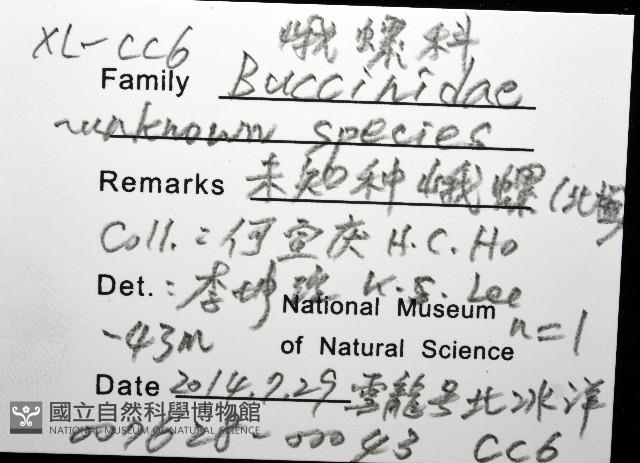 XL-CC6 峨螺科
Family Buccinidae
unknown species
Remarks 未知种峨螺(北極)
Coll.: 何宣庆 H.C. Ho
Det.: 李坤瑄 K.S. Lee
National Museum
-43m n=1
of Natural Science
Date 2014.7.29 雪龍号北冰洋
國立自然科學博物館
NATIONAL MUSEUM OF NATURAL SCIENCE
CC6